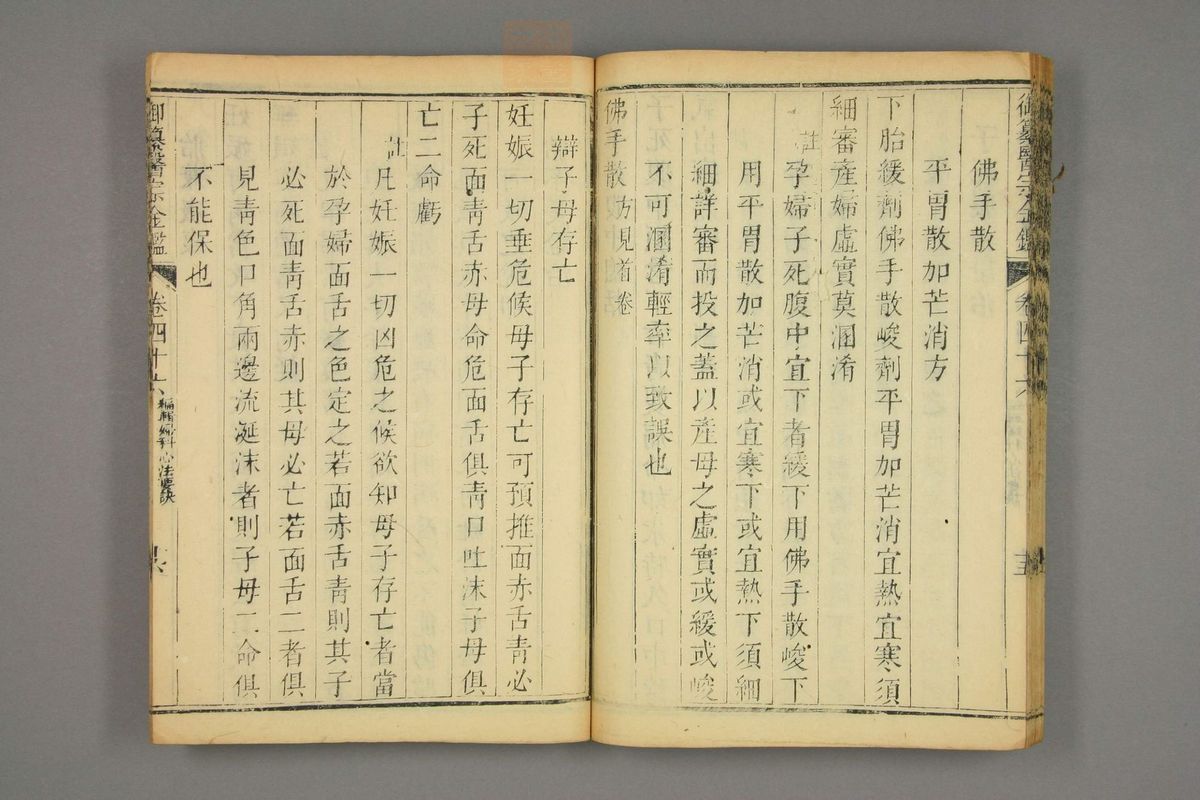 御纂醫宗金鑑 卷四十六
佛手散
平胃散加芒消方
下胎緩劑佛手散峻劑平胃加芒消宜熱宜寒須
細審產婦虛實莫溷淆
註孕婦子死腹中宜下者緩下用佛手散峻下
用平胃散加芒消或宜寒下或宜熱下須細
細詳審而投之蓋以產母之虛實或緩或峻
不可溷淆輕率以致誤也
佛手散方見首卷
辯子母存亡
妊娠一切垂危候母子存亡可預推面赤舌青必
子死面青舌赤母命危面舌俱青口吐沫子母俱
亡二命虧
註凡妊娠一切凶危之候欲知母子存亡者當
於孕婦面舌之色定之若面赤舌青則其子
必死面青舌赤則其母必亡若面舌二者俱
見青色口角兩邊流涎沫者則子母二命俱
不能保也
御纂醫宗金鑑 卷四十六 編輯婦科心法要訣